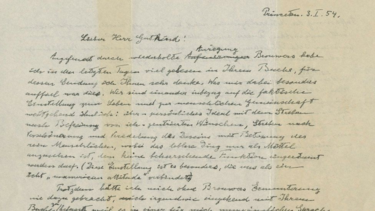 Princeton, 3. I. 54.
Lieber Herr Gutkind!
Anregung
Angefeuert durch wiederholte Brouwers habe
ich in den letzten Tagen viel gelesen in Ihrem Buche, für
dessen Sendung ich Ihnen sehr danke. Was mir dabei besonders
auffiel war dies. Wir sind einander inbezug auf die faktische
Einstellung zum Leben und zur menschlichen Gemeinschaft
weitgehend
nach Befreiung von ich-zentrierten Wünschen, Streben nach
Verschönerung und Veredelung des Daseins mit Betonung des
rein Menschlichen, wobei das leblose Ding nur als Mittel
anzusehen ist, dem keine beherrschende Funktion eingeräumt
werden darf. Diese Einstellung ist es besonders, die uns als ein
echt "unamerican attitude" verbindet
Trotzdem hätte ich mich ohne Brouwers Ermunterung
nie dazu gebracht, mich irgendwie eingehend mit Ihrem
Buch zu befassen weil es in einer für mich unzugänglichen Sprache